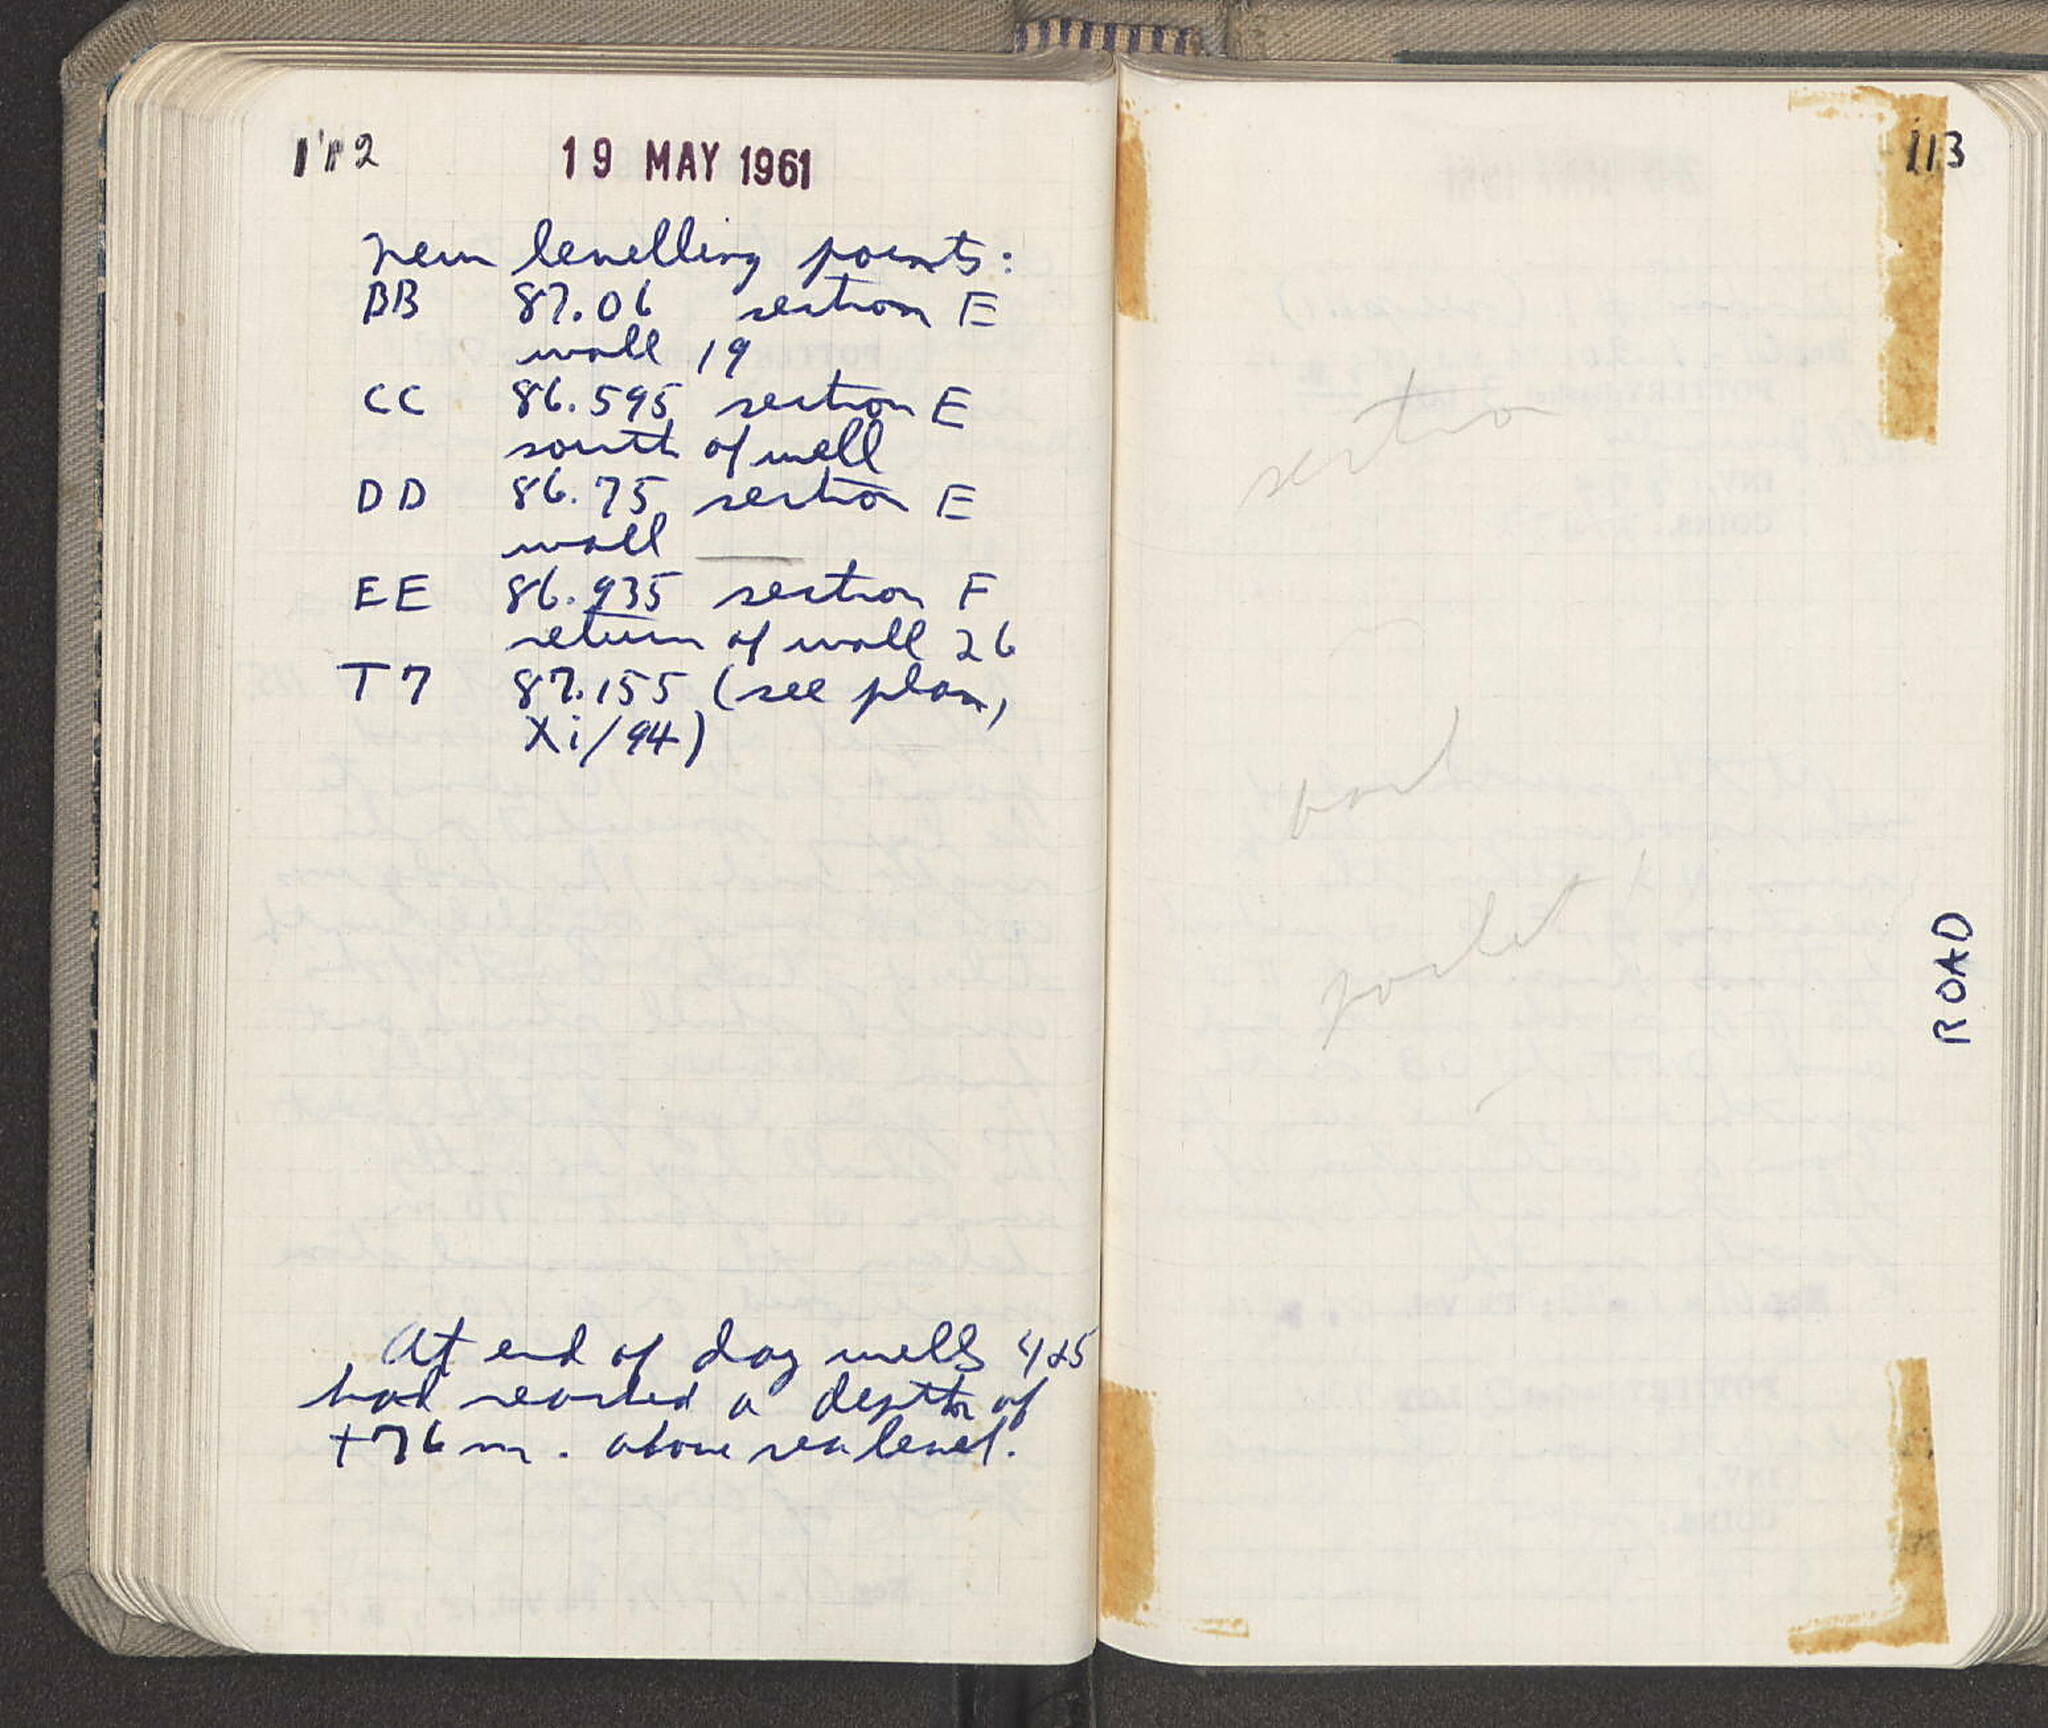 112
19 MAY 1961
new levelling points:
BB 87.06 section E
wall 19
CC 86.595 section E
south of well
DD 86.75 section E
wall
EE 86.935 section F
return of wall 26
T7 87.155 (see plan,
Xi/94)
At end of day wells 4+5
had reached a depth of
+76 m. above sea level.
113
section
and
pocket
ROAD